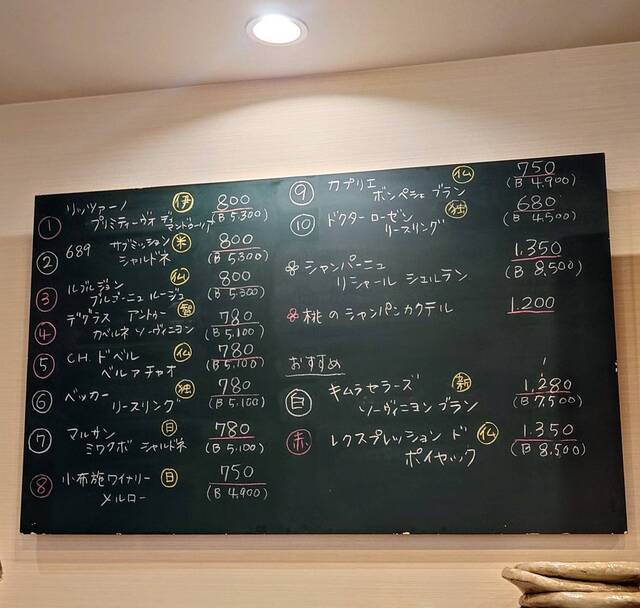 ① リッツァーノ 伊 800
プリミティーヴォ ディ マンドゥーリア (B 5.300)
② 689 サブミッション 米 800
シャルドネ (B 5.300)
③ ルブルジョン 仏 800
ブルゴーニュ ルージュ (B 5.300)
④ デグラス アントゥー 智 780
カベルネ ソーヴィニヨン (B 5,100)
⑤ CH. ドベル 仏 780
ベルアチャオ (B 5,100)
⑥ ベッカー 独 780
リースリング (B 5.100)
⑦ マルサン 日 780
ミワクボ シャルドネ (B 5,100)
⑧ 小布施ワイナリー 日 750
メルロー (B 4,900)
⑨ カプリエ 仏 750
ボンペシェ ブラン (B 4,900)
⑩ ドクターローゼン 独 680
リースリング (B 4,500)
シャンパーニュ 1,350
リシャール シュルラン (B 8,500)
桃のシャンパンカクテル 1,200
おすすめ
白 キムラセラーズ 新 1,280
ソーヴィニヨン ブラン (B 7,500)
赤 レクスプレッション ド 仏 1,350
ポイヤック (B 8,500)